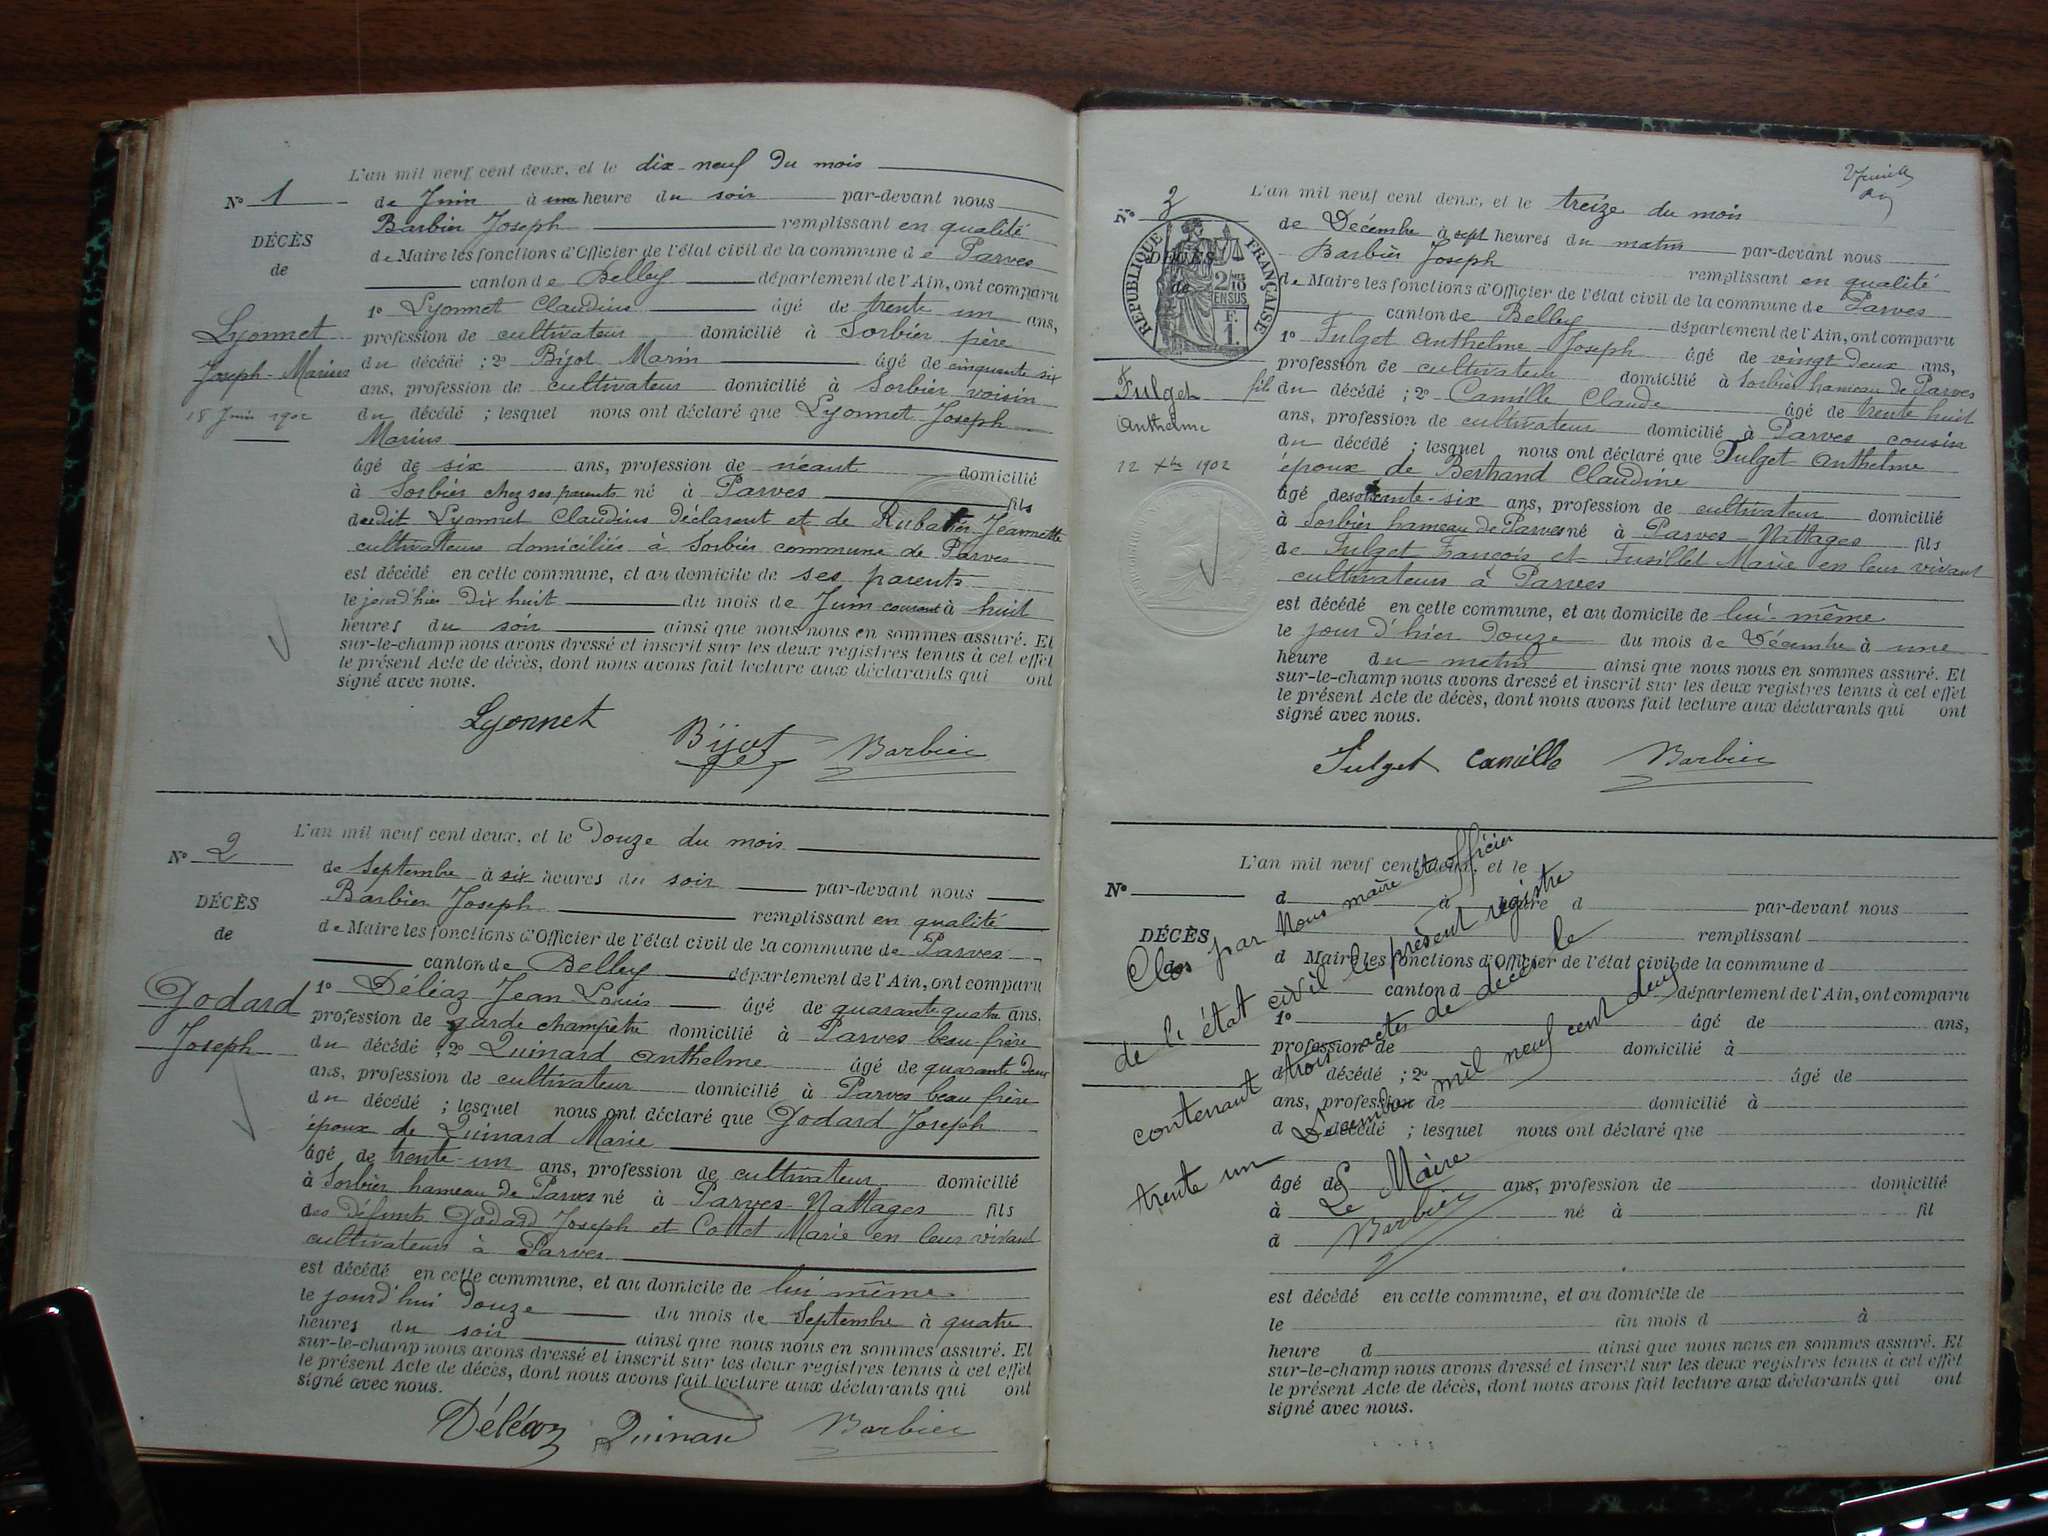 L'an mil neuf cent deux, et le dix-neuf du mois
N° 1 de Juin à heure du soir par-devant nous
Barbier Joseph remplissant en qualité
DÉCÈS
de Maire les fonctions d'Officier de l'état civil de la commune de Parves
de
canton de Belley département de l'Ain, ont comparu
1° Lyonnet Claudius âgé de trente un ans,
Lyonnet
profession de cultivateur domicilié à Sorbier père
Joseph-Marius
du décédé ; 2° Bijot Marin âgé de cinquante six
ans, profession de cultivateur domicilié à Sorbier voisin
18 Juin 1902
du décédé ; lesquel nous ont déclaré que Lyonnet Joseph
Marius
âgé de six ans, profession de néant domicilié
à Sorbier chez ses parents né à Parves fils
dudit Lyonnet Claudius déclarant et de Rubatier Jeannette
cultivateurs domiciliés à Sorbier commune de Parves
est décédé en cette commune, et au domicile de ses parents
le jour d'hier dix huit du mois de Juin courant à huit
heures du soir ainsi que nous nous en sommes assuré. Et
sur-le-champ nous avons dressé et inscrit sur les deux registres tenus à cet effet
le présent Acte de décès, dont nous avons fait lecture aux déclarants qui ont
signé avec nous.
Lyonnet Bijot Barbier
L'an mil neuf cent deux, et le Douze du mois
N° 2
de Septembre à six heures du soir par-devant nous
DÉCÈS
Barbier Joseph remplissant en qualité
de
de Maire les fonctions d'Officier de l'état civil de la commune de Parves
canton de Belley département de l'Ain, ont comparu
Godard
1° Déléaz Jean Louis âgé de quarante quatre ans,
profession de garde champêtre domicilié à Parves beau-frère
Joseph
du décédé ; 2° Quinard Anthelme âgé de quarante deux
ans, profession de cultivateur domicilié à Parves beau frère
du décédé ; lesquel nous ont déclaré que Godard Joseph
époux de Quinard Marie
âgé de trente-un ans, profession de cultivateur domicilié
à Sorbier hameau de Parves né à Parves-Nattages fils
des défunts Godard Joseph et Cottet Marie en leur vivant
cultivateurs à Parves
est décédé en cette commune, et au domicile de lui même
le jourd'hui Douze du mois de Septembre à quatre
heures du soir ainsi que nous nous en sommes assuré. Et
sur-le-champ nous avons dressé et inscrit sur les deux registres tenus à cet effet
le présent Acte de décès, dont nous avons fait lecture aux déclarants qui ont
signé avec nous.
Déléaz Quinard Barbier
L'an mil neuf cent deux, et le treize du mois
N° 3
de Décembre à sept heures du matin par-devant nous
RÉPUBLIQUE FRANÇAISE
2/10 EN SUS
F. 1.
DÉCÈS
de
Barbier Joseph remplissant en qualité
de Maire les fonctions d'Officier de l'état civil de la commune de Parves
canton de Belley département de l'Ain, ont comparu
1° Fulget Anthelme Joseph âgé de vingt-deux ans,
profession de cultivateur domicilié à Sorbier hameau de Parves
Fulget
fils du décédé ; 2° Camille Claude âgé de trente huit
Anthelme
ans, profession de cultivateur domicilié à Parves cousin
du décédé ; lesquel nous ont déclaré que Fulget Anthelme
12 Xbre 1902
époux de Berthand Claudine
âgé de soixante-six ans, profession de cultivateur domicilié
à Sorbier hameau de Parves né à Parves-Nattages fils
de Fulget François et Fusillet Marie en leur vivant
cultivateurs à Parves
est décédé en cette commune, et au domicile de lui-même
le jour d'hier douze du mois de Décembre à une
heure du matin ainsi que nous nous en sommes assuré. Et
sur-le-champ nous avons dressé et inscrit sur les deux registres tenus à cet effet
le présent Acte de décès, dont nous avons fait lecture aux déclarants qui ont
signé avec nous.
Fulget Camille Barbier
L'an mil neuf cent deux, et le
N°
d à heure d par-devant nous
DÉCÈS
remplissant
de
d Maire les fonctions d'Officier de l'état civil de la commune d
canton d département de l'Ain, ont comparu
1° âgé de ans,
profession de domicilié à
d décédé ; 2° âgé de
ans, profession de domicilié à
d décédé ; lesquel nous ont déclaré que
âgé de ans, profession de domicilié
à né à fil
d
est décédé en cette commune, et au domicile de
le du mois d à
heure d ainsi que nous nous en sommes assuré. Et
sur-le-champ nous avons dressé et inscrit sur les deux registres tenus à cet effet
le présent Acte de décès, dont nous avons fait lecture aux déclarants qui ont
signé avec nous.
Clos par Nous maire et officier
de l'état civil le présent registre
contenant trois actes de décès le
trente un Décembre mil neuf cent deux
Le Maire
Barbier